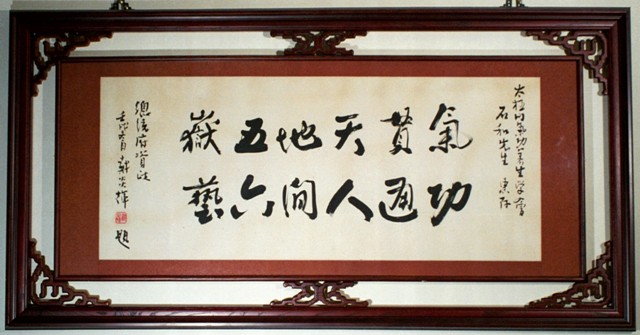 太極門氣功養生學會
石和先生 惠存
氣功
貫通
天人
地間
五六
嶽藝
總統府資政
戴炎輝 題